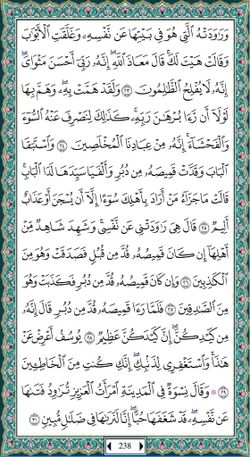 وَرَٰوَدَتْهُ ٱلَّتِى هُوَ فِى بَيْتِهَا عَن نَّفْسِهِۦ وَغَلَّقَتِ ٱلْأَبْوَٰبَ
وَقَالَتْ هَيْتَ لَكَ ۚ قَالَ مَعَاذَ ٱللَّهِ ۖ إِنَّهُۥ رَبِّىٓ أَحْسَنَ مَثْوَاىَ ۖ
إِنَّهُۥ لَا يُفْلِحُ ٱلظَّٰلِمُونَ ٢٣ وَلَقَدْ هَمَّتْ بِهِۦ ۖ وَهَمَّ بِهَا
لَوْلَآ أَن رَّءَا بُرْهَٰنَ رَبِّهِۦ ۚ كَذَٰلِكَ لِنَصْرِفَ عَنْهُ ٱلسُّوٓءَ
وَٱلْفَحْشَآءَ ۚ إِنَّهُۥ مِنْ عِبَادِنَا ٱلْمُخْلَصِينَ ٢٤ وَٱسْتَبَقَا
ٱلْبَابَ وَقَدَّتْ قَمِيصَهُۥ مِن دُبُرٍ وَأَلْفَيَا سَيِّدَهَا لَدَا ٱلْبَابِ ۚ
قَالَتْ مَا جَزَآءُ مَنْ أَرَادَ بِأَهْلِكَ سُوٓءًا إِلَّآ أَن يُسْجَنَ أَوْ عَذَابٌ
أَلِيمٌ ٢٥ قَالَ هِىَ رَٰوَدَتْنِى عَن نَّفْسِى ۚ وَشَهِدَ شَاهِدٌ مِّنْ
أَهْلِهَآ إِن كَانَ قَمِيصُهُۥ قُدَّ مِن قُبُلٍ فَصَدَقَتْ وَهُوَ مِنَ
ٱلْكَٰذِبِينَ ٢٦ وَإِن كَانَ قَمِيصُهُۥ قُدَّ مِن دُبُرٍ فَكَذَبَتْ وَهُوَ
مِنَ ٱلصَّٰدِقِينَ ٢٧ فَلَمَّا رَءَا قَمِيصَهُۥ قُدَّ مِن دُبُرٍ قَالَ إِنَّهُۥ
مِن كَيْدِكُنَّ ۖ إِنَّ كَيْدَكُنَّ عَظِيمٌ ٢٨ يُوسُفُ أَعْرِضْ عَنْ
هَٰذَا ۚ وَٱسْتَغْفِرِى لِذَنۢبِكِ ۖ إِنَّكِ كُنتِ مِنَ ٱلْخَاطِـِٔينَ
٢٩ وَقَالَ نِسْوَةٌ فِى ٱلْمَدِينَةِ ٱمْرَأَتُ ٱلْعَزِيزِ تُرَٰوِدُ فَتَىٰهَا
عَن نَّفْسِهِۦ ۖ قَدْ شَغَفَهَا حُبًّا ۖ إِنَّا لَنَرَىٰهَا فِى ضَلَٰلٍ مُّبِينٍ ٣٠
238